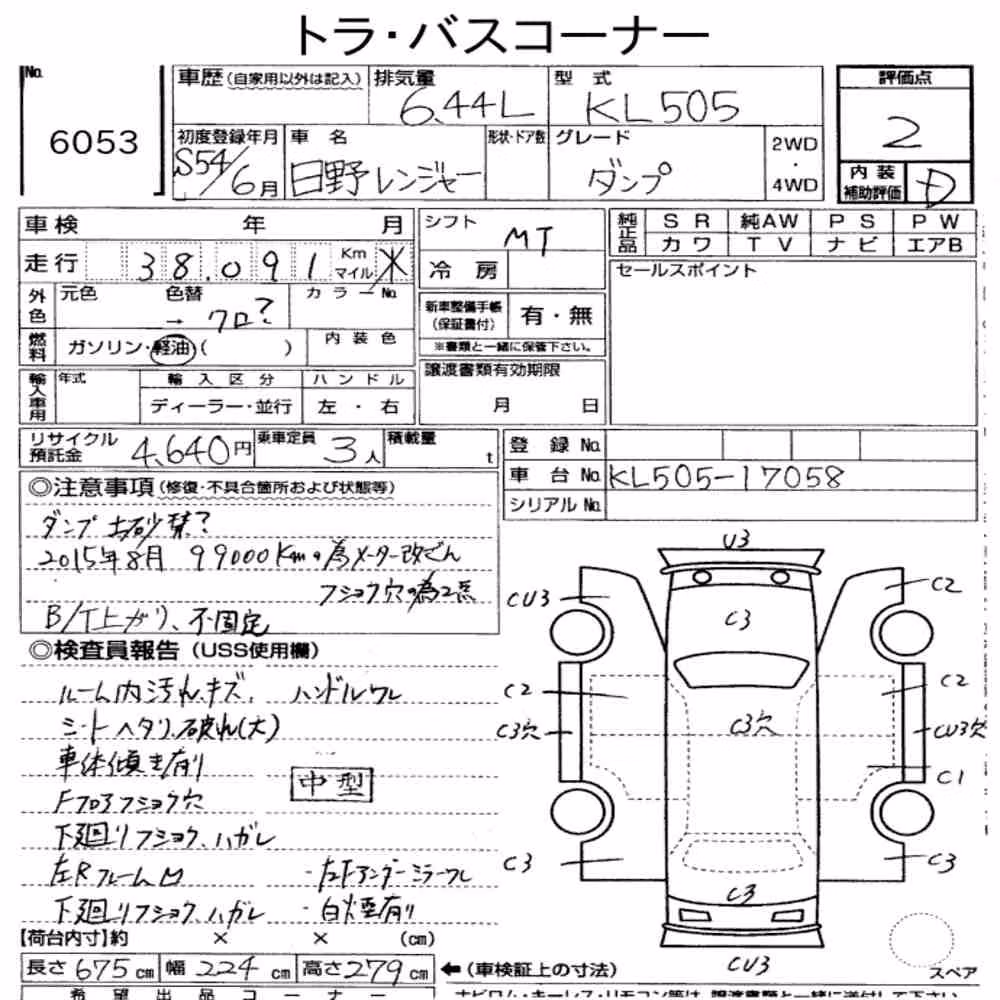 トラ・バスコーナー
No.
6053
車歴(自家用以外は記入)
排気量 6.44L
型式 KL505
評価点
2
初度登録年月 S54/6月
車名 日野レンジャー
形状・ドア数
グレード ダンプ
2WD・4WD
内装補助評価 D
車検 年 月
走行 38.091 Km マイル 米
外色 元色 色替 → クロ?
カラーNo.
燃料 ガソリン・軽油( )
内装色
輸入車用 年式 輸入区分 ハンドル
ディーラー・並行 左・右
シフト MT
冷房
新車整備手帳(保証書付) 有・無
※書類と一緒に保管下さい。
譲渡書類有効期限
月 日
純正品 SR 純AW PS PW
カワ TV ナビ エアB
セールスポイント
リサイクル預託金 4,640円
乗車定員 3人
積載量 t
登録No.
車台No. KL505-17058
シリアルNo.
◎注意事項(修復・不具合箇所および状態等)
ダンプ土砂禁?
2015年8月 99000Kmの為メーター改ざん
フショク穴の為2点
B/T上がり、不固定
◎検査員報告(USS使用欄)
ルーム内汚れキズ、ハンドルワレ
シートヘタリ、破れ(大)
車体傾き有り
中型
Fフロアフショク穴
下廻りフショク、ハガレ
左Rフレーム凹
・左Fアンダーミラーワレ
下廻りフショク、ハガレ
・白煙有り
【荷台内寸】約 × × (cm)
長さ675cm 幅224cm 高さ279cm
←(車検証上の寸法)
希望出品コーナー
ナビロム・キーレス・リモコン等は、譲渡書類と一緒に送付して下さい
U3
CU3
C2
C3
C2
C2
C3穴
C3穴
CU3穴
C1
C3
C3
C3
CU3
スペア